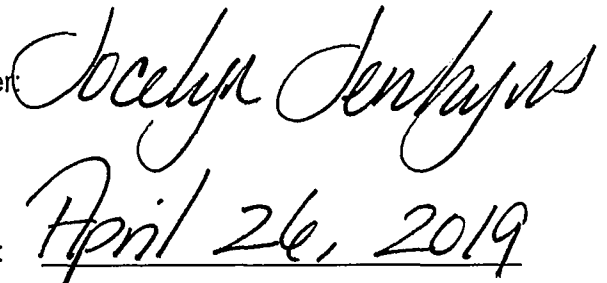 er: Jocelyn Jenkyns
: April 26, 2019